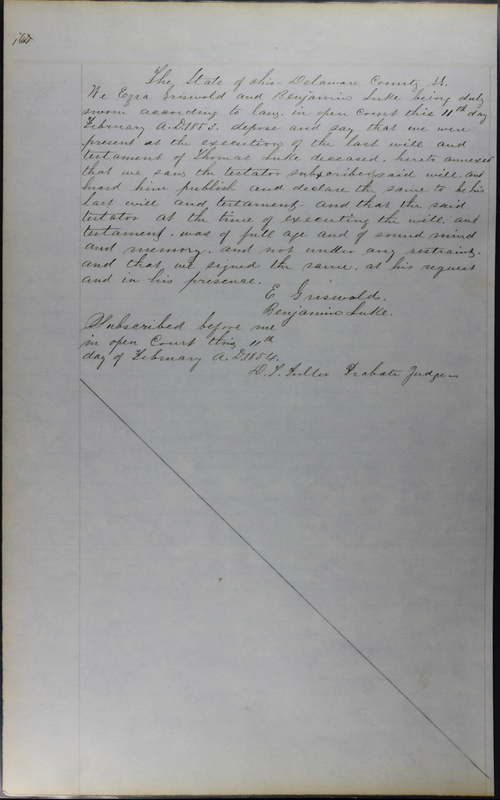 The State of Ohio Delaware County SS.
We Ezra Griswold and Benjamin Luke being duly
sworn according to law, in open Court this 11th day
February A.D. 1853. depose and say that we were
present at the execution of the last will and
testament of Thomas Luke deceased. hereto annexed
that we saw the testator subscribe said will, and
heard him publish and declare the same to be his
last will and testament. and that the said
testator at the time of executing the will and
testament, was of full age and of sound mind
and memory. and not under any restraint.
and that we signed the same, at his request
and in his presence.
E Griswold.
Benjamin Luke.
Subscribed before me
in open Court this 11th
day of February A.D. 1854.
Probate Judge